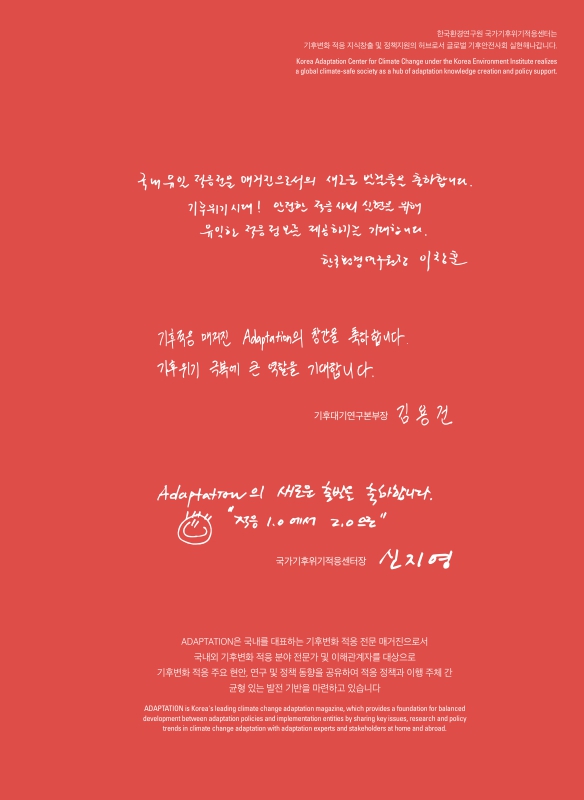 한국환경연구원 국가기후위기적응센터는
기후변화 적응 지식창출 및 정책지원의 허브로서 글로벌 기후안전사회 실현해나갑니다.
Korea Adaptation Center for Climate Change under the Korea Environment Institute realizes
a global climate-safe society as a hub of adaptation knowledge creation and policy support.
국내 유일 적응전문 매거진으로서의 새로운 발걸음을 축하합니다.
기후위기시대! 안전한 적응사회 실현을 위해
유익한 적응정보를 제공하기를 기대합니다.
한국환경연구원장 이창훈
기후적응 매거진 Adaptation의 창간을 축하합니다.
기후위기 극복에 큰 역할을 기대합니다.
기후대기연구본부장 김용건
Adaptation의 새로운 출발을 축하합니다.
"적응 1.0에서 2.0으로"
국가기후위기적응센터장 신지영
ADAPTATION은 국내를 대표하는 기후변화 적응 전문 매거진으로서
국내외 기후변화 적응 분야 전문가 및 이해관계자를 대상으로
기후변화 적응 주요 현안, 연구 및 정책 동향을 공유하여 적응 정책과 이행 주체 간
균형 있는 발전 기반을 마련하고 있습니다
ADAPTATION is Korea's leading climate change adaptation magazine, which provides a foundation for balanced
development between adaptation policies and implementation entities by sharing key issues, research and policy
trends in climate change adaptation with adaptation experts and stakeholders at home and abroad.